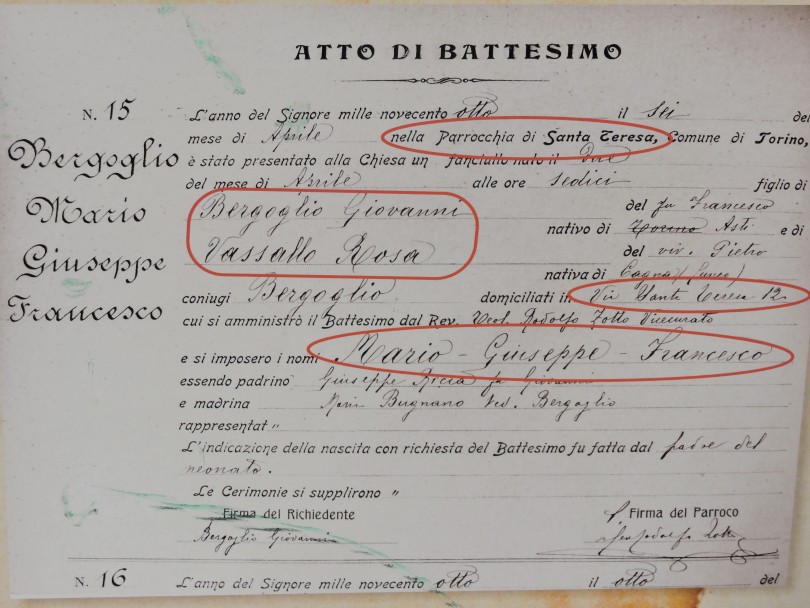 ATTO DI BATTESIMO
N. 15
Bergoglio
Mario
Giuseppe
Francesco
L'anno del Signore mille novecento otto il sei del
mese di Aprile nella Parrocchia di Santa Teresa, Comune di Torino,
è stato presentato alla Chiesa un fanciullo nato il due
del mese di Aprile alle ore sedici figlio di
Bergoglio Giovanni del fu Francesco
nativo di Torino Asti e di
Vassallo Rosa del viv. Pietro
nativa di
coniugi Bergoglio domiciliati in Via Santa Teresa 12
cui si amministrò il Battesimo dal Rev. Rodolfo Zotto Vicecurato
e si imposero i nomi Mario - Giuseppe - Francesco
essendo padrino Giuseppe fu Giovanni
e madrina Maria Bugnano Ved. Bergoglio
rappresentat "
L'indicazione della nascita con richiesta del Battesimo fu fatta dal padre del
neonato.
Le Cerimonie si supplirono "
Firma del Richiedente
Bergoglio Giovanni
Firma del Parroco
N. 16 L'anno del Signore mille novecento otto il otto del